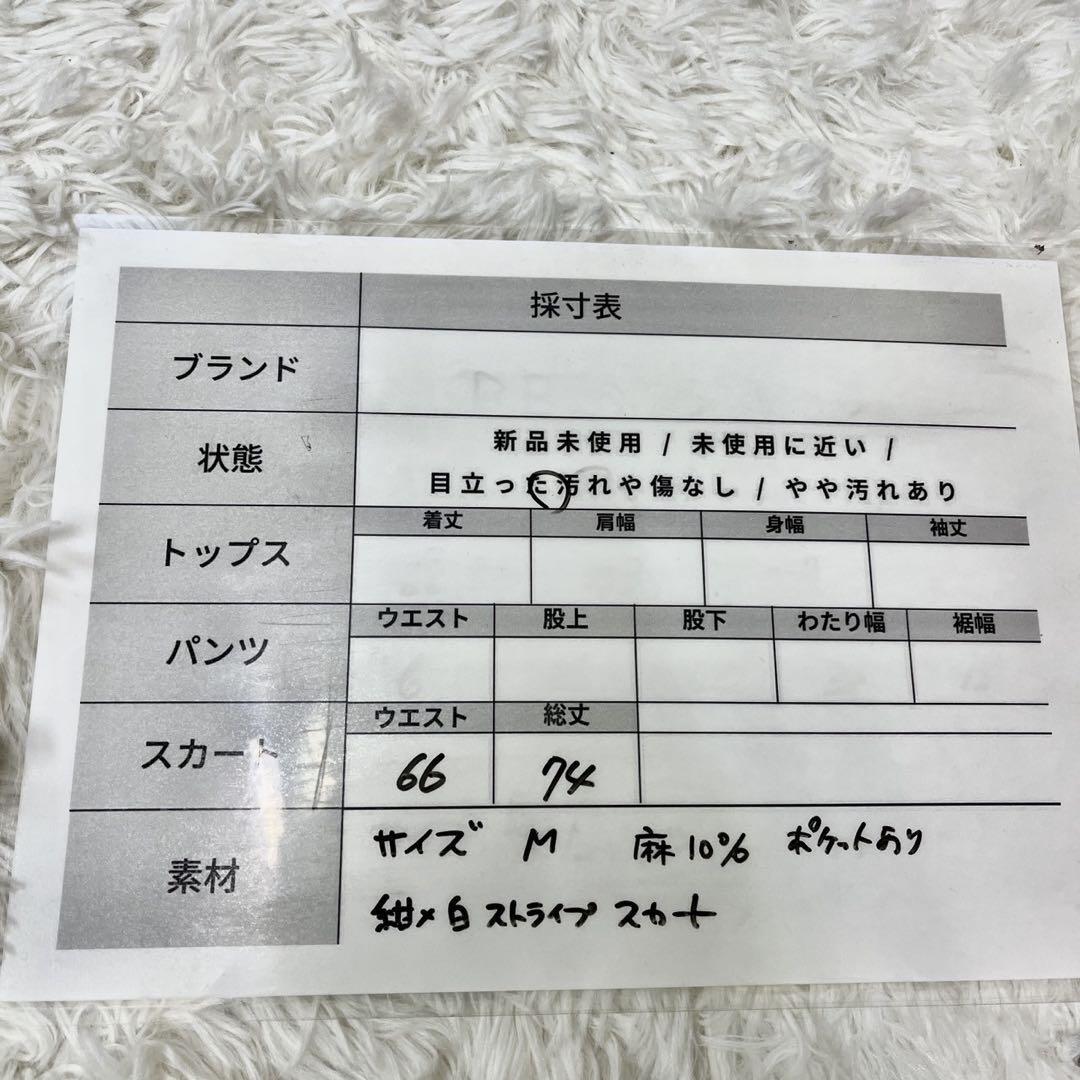 採寸表
ブランド
状態
新品未使用 / 未使用に近い /
目立った汚れや傷なし / やや汚れあり
トップス
着丈 肩幅 身幅 袖丈
パンツ
ウエスト 股上 股下 わたり幅 裾幅
スカート
ウエスト 総丈
66 74
素材
サイズ M 麻10% ポケットあり
紺×白 ストライプ スカート